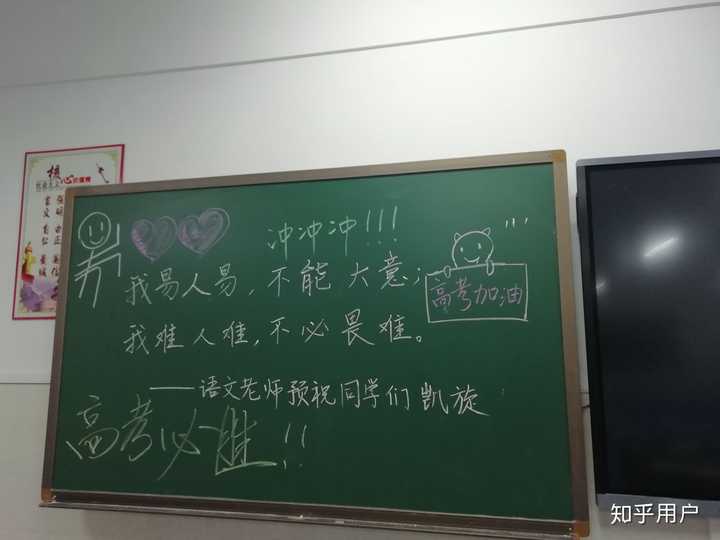 核
心价值观
冲冲冲!!!
我易人易,不能大意;
高考加油
我难人难,不必畏难。
——语文老师预祝同学们凯旋
高考必胜!!
知乎用户